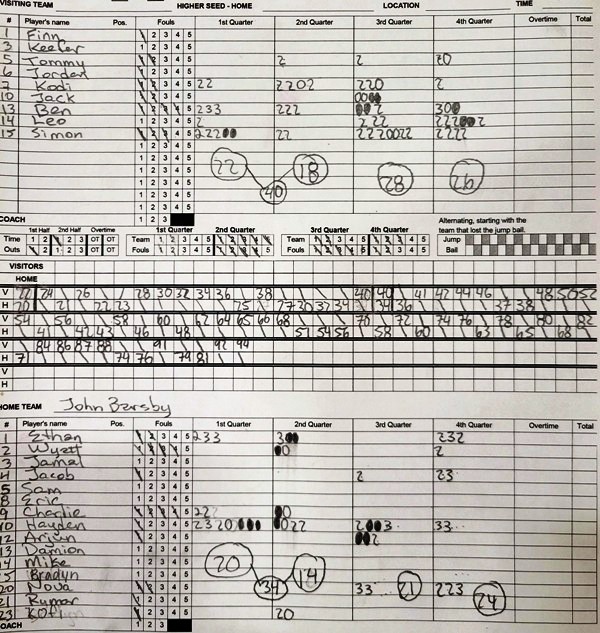 VISITING TEAM HIGHER SEED - HOME LOCATION TIME
# Player's name Pos. Fouls 1st Quarter 2nd Quarter 3rd Quarter 4th Quarter Overtime Total
1 Finn 1 2 3 4 5
3 Keefer 1 2 3 4 5
5 Tommy 1 2 3 4 5 2 2 20
6 Jordan 1 2 3 4 5
7 Kodi 1 2 3 4 5 22 2202 220 2
10 Jack 1 2 3 4 5
13 Ben 1 2 3 4 5 233 222
14 Leo 1 2 3 4 5 2 2 22
15 Simon 1 2 3 4 5 22200 22 2220022 2222
1 2 3 4 5
22 18 28 26
1 2 3 4 5
40
1 2 3 4 5
COACH 1 2 3
1st Half 2nd Half Overtime 1st Quarter 2nd Quarter 3rd Quarter 4th Quarter Alternating, starting with the
Time 1 2 1 2 3 OT OT Team 1 2 3 4 5 1 2 3 4 5 Team 1 2 3 4 5 1 2 3 4 5 team that lost the jump ball.
Outs 1 2 1 2 3 OT OT Fouls Fouls Jump
Ball
VISITORS
HOME
V 26 28 30 32 34 36 38 40 41 42 44 46 48 50 52
H 21 22 23 25 27 30 32 34 34 36 37 38
V 54 56 58 60 62 64 65 66 68 70 72 74 76 78 80 82
H 41 42 43 46 48 51 54 56 58 60 63 65 68
V 84 86 87 88 91 92 94
H 71 74 76 79 81
V
H
HOME TEAM John Barsby
# Player's name Pos. Fouls 1st Quarter 2nd Quarter 3rd Quarter 4th Quarter Overtime Total
1 Ethan 1 2 3 4 5 233 300 232
2 Wyatt 1 2 3 4 5 00 2
3 Jamal 1 2 3 4 5
4 Jacob 1 2 3 4 5 2 23
5 Sam 1 2 3 4 5
8 Eric 1 2 3 4 5
9 Charlie 1 2 3 4 5 22 00
10 Hayden 1 2 3 4 5 2320000 0022 2003 33
12 Arjun 1 2 3 4 5 002
13 Damion 1 2 3 4 5
14 Mike 1 2 3 4 5 20 14
15 Bradyn 1 2 3 4 5
20 Nova 1 2 3 4 5 34 33 21 223 24
21 Kumar 1 2 3 4 5
23 1 2 3 4 5 20
COACH 1 2 3